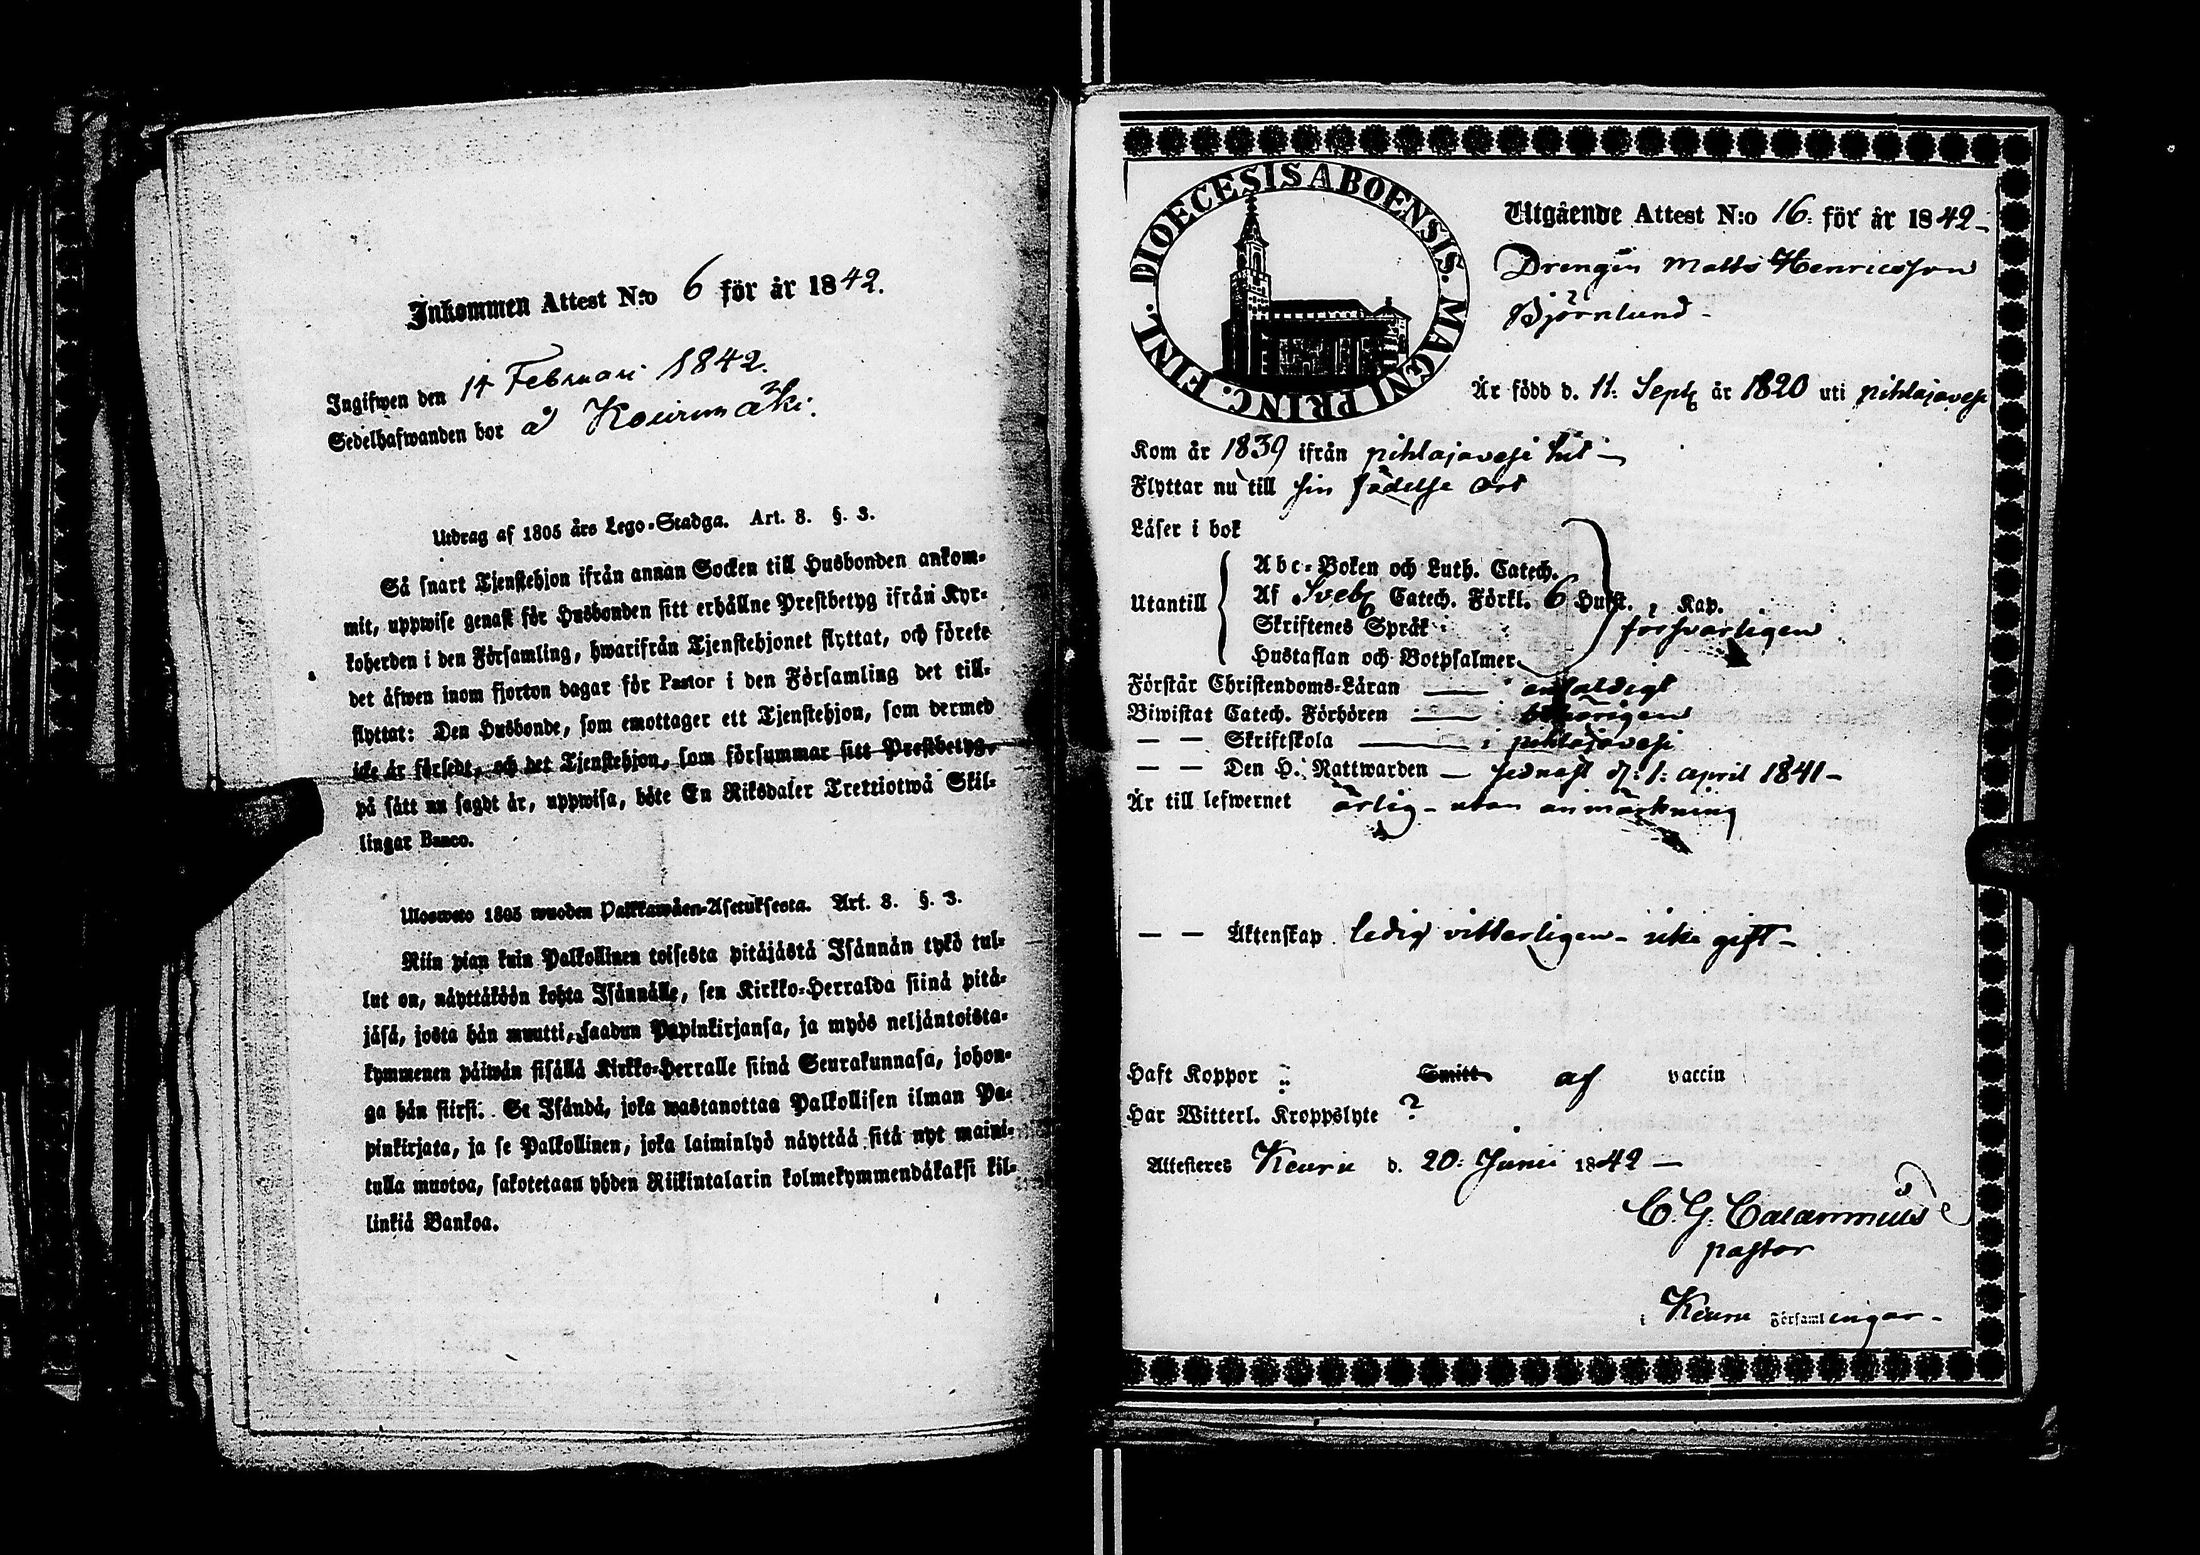 Inkommen Attest N:o 6 för år 1842.
Ingifwen den 14 Februari 1842.
Sedelhafwanden bor å Koirumäki.
Utdrag af 1805 års Lego-Stadga. Art. 8. §. 3.
Så snart Tjenstehjon ifrån annan Socken till Husbonden ankom-
mit, uppwise genast för Husbonden sitt erhållne Prestbetyg ifrån Kyr-
koherden i den Församling, hwarifrån Tjenstehjonet flyttat, och förete
det äfwen inom fjorton dagar för Pastor i den Församling det till-
flyttat: Den Husbonde, som emottager ett Tjenstehjon, som dermed
icke är försedt, och det Tjenstehjon, som försummar sitt Prestbetyg,
på sätt nu sagdt är, uppwisa, böte En Riksdaler Trettiotwå Skil-
lingar Banco.
Ulosweto 1805 wuoden Palkkawäen-Asetuksesta. Art. 8. §. 3.
Niin pian kuin Palkollinen toisesta pitäjästä Isännän tykö tul-
lut on, näyttäköön kohta Isännälle, sen Kirkko-Herralda siinä pitä-
jäsä, josta hän muutti, saadun Papinkirjansa, ja myös neljäntoista-
kymmenen päiwän sisällä Kirkko-Herralle siinä Seurakunnasa, johon-
ga hän siirsi. Se Isändä, joka wastanottaa Palkollisen ilman Pa-
pinkirjata, ja se Palkollinen, joka laiminlyö näyttää sitä nyt maini-
tulla muotoa, sakotetaan yhden Riikintalarin kolmekymmendäkaksi kil-
linkiä Bankoa.
DIOECESIS ABOENSIS. MAGNI PRINC. FINL.
Utgående Attest N:o 16. för år 1842-
Drengen Matts Henricsson
Björnlund-
Är född d. 11. Sept. år 1820 uti pihlajavesi
Kom år 1839 ifrån pihlajavesi hit-
Flyttar nu till sin födelse ort
Läser i bok
Utantill
Abc-Boken och Luth. Catech.
Af Sveb. Catech. Förkl. 6 Hufst. , Kap.
Skriftenes Språk
försvarligen
Hustaflan och Botpsalmer
Förstår Christendoms-Läran — enfaldigt
Biwistat Catech. Förhören — behörigen
— — Skriftskola — i pihlajavesi
— — Den H. Nattwarden — sednast d. 1. april 1841-
Är till lefwernet ärlig - utan anmärkning
— — Äktenskap ledig vitterligen - icke gift-
Haft Koppor :: Smitt af vaccin
Har Witterl. Kroppslyte ?
Attesteres Keuru d. 20. Junii 1842 —
C. G. Calamnius
pastor
i Keuru Församlingar-